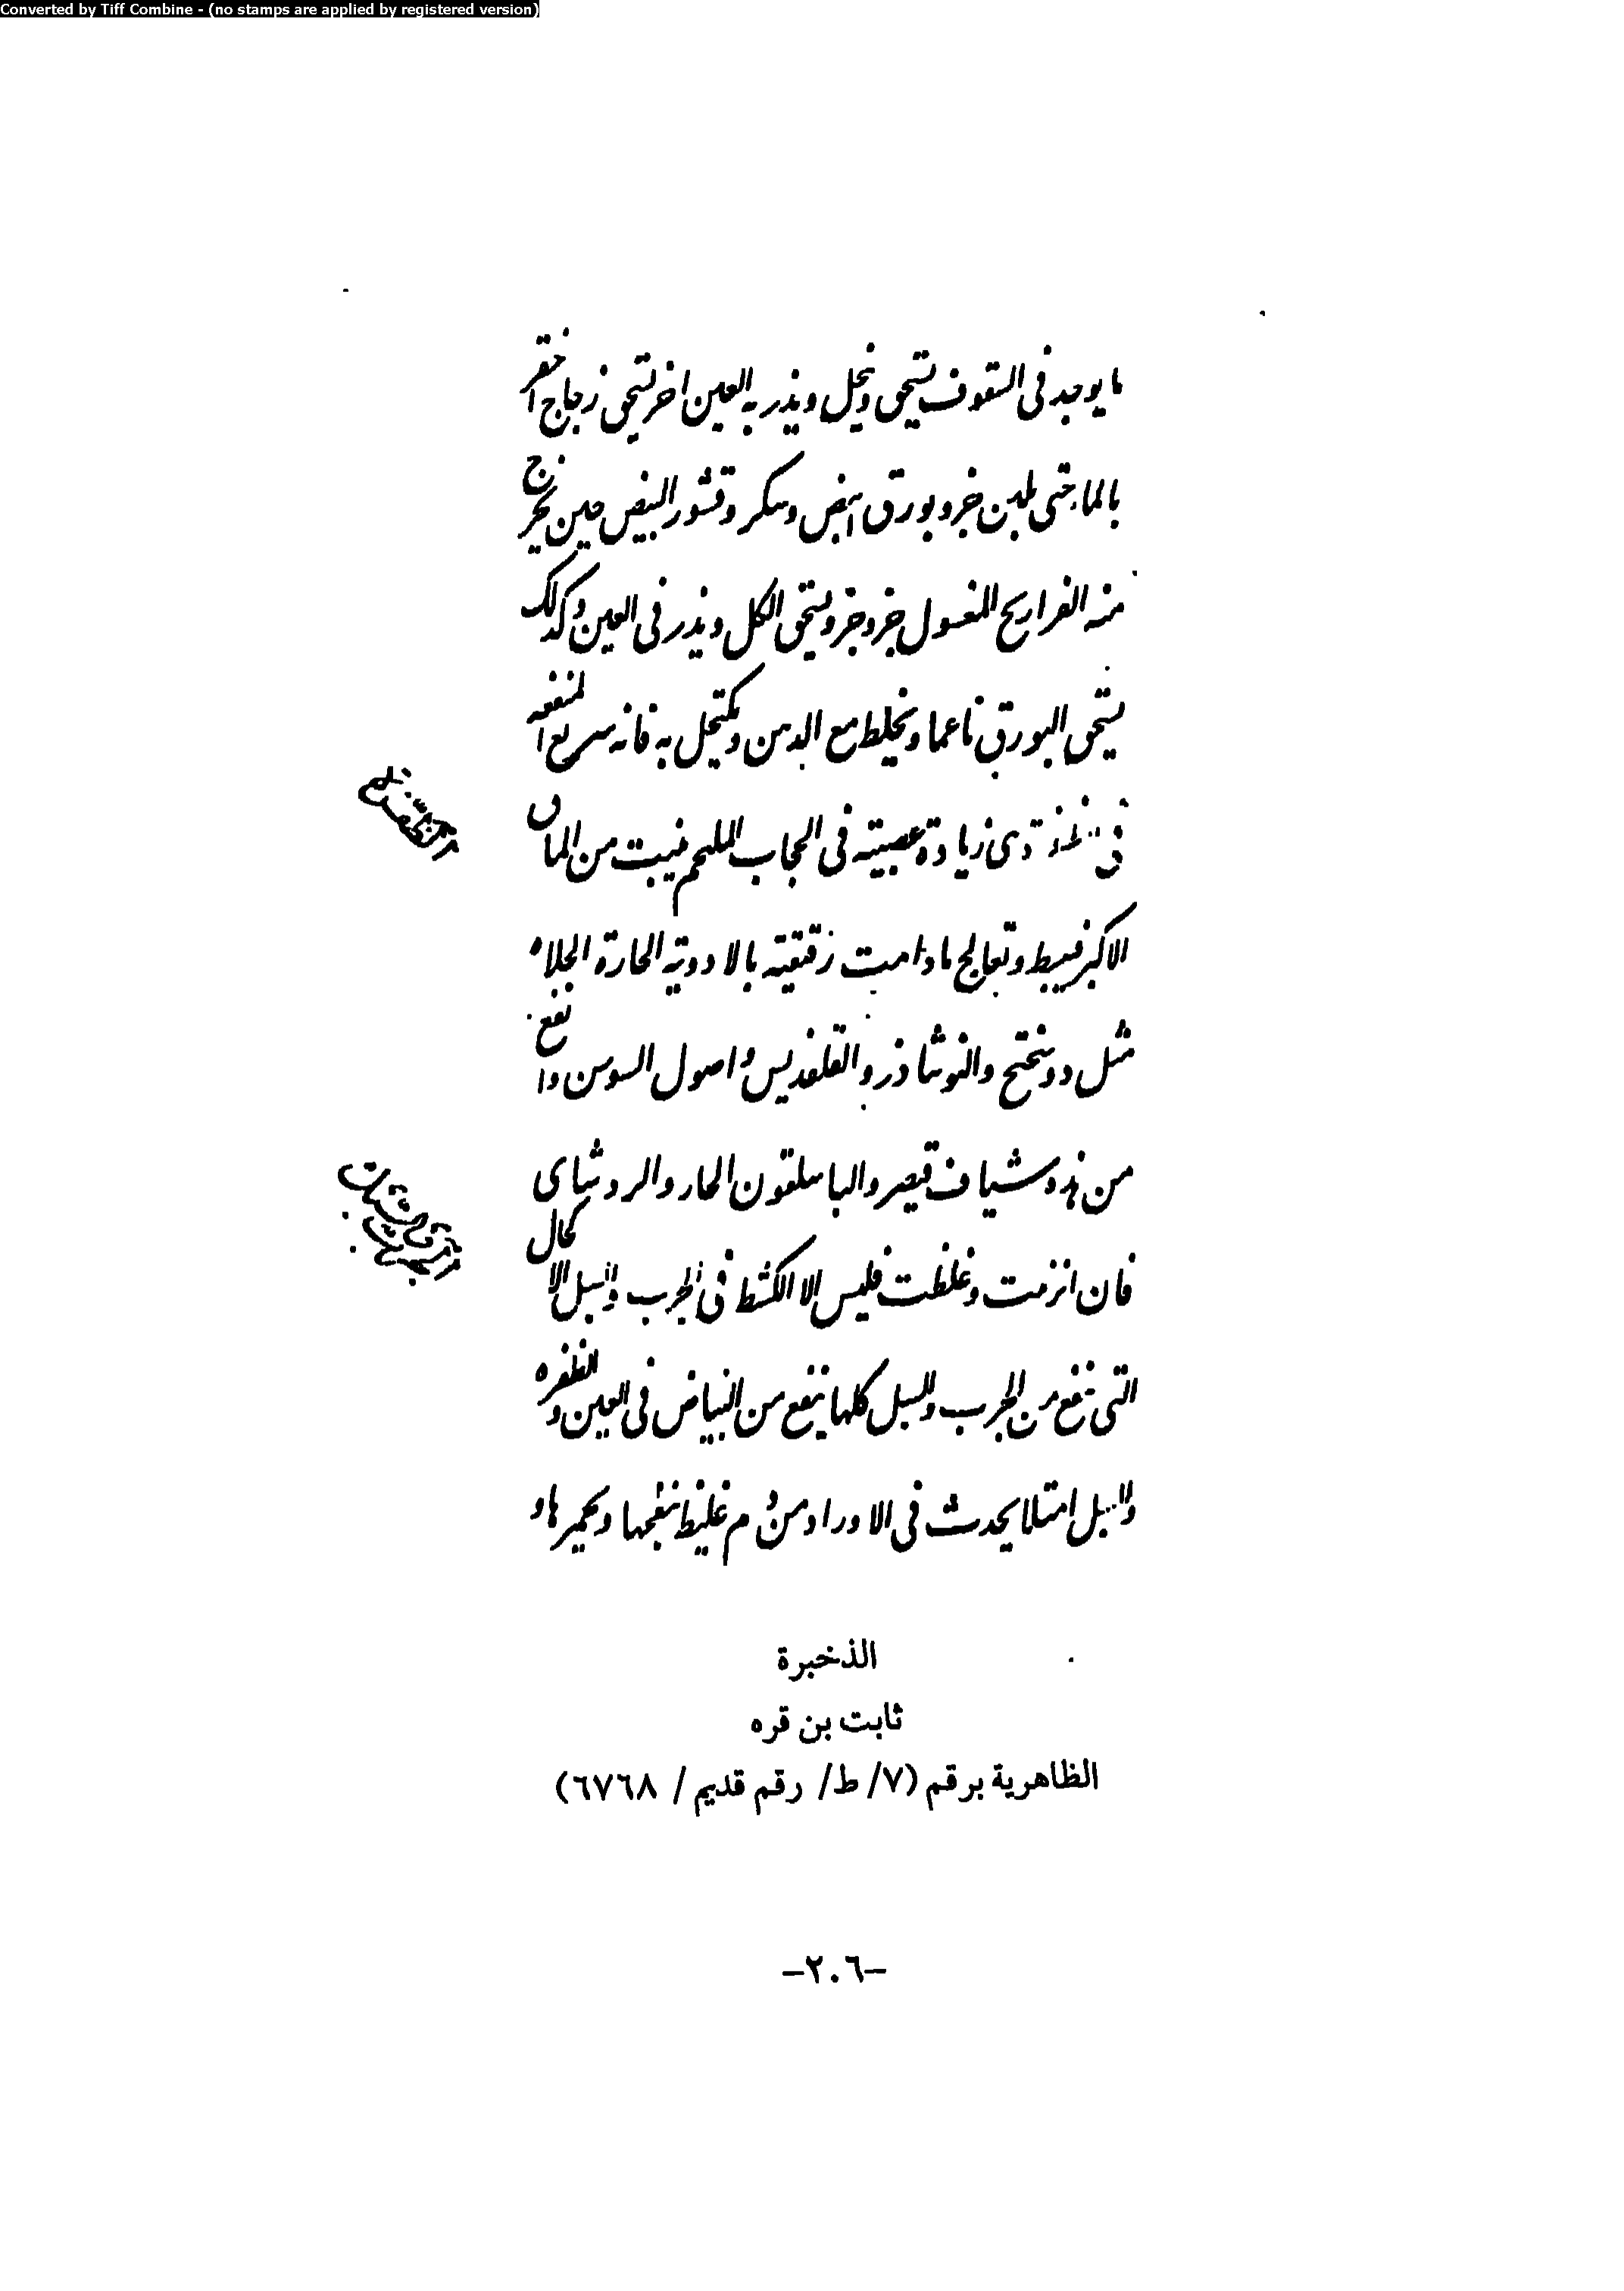 Converted by Tiff Combine - (no stamps are applied by registered version)
ما يوجد فى السقوف يسحق وينخل ويذر به العين اخر يسحق زجاج اخضر
بالما حتى يلين جزو بورق ابيض وسكر وقشور البيض حين يخرج
منه الفراريج المغسول جزو جزو يسحق الكل ويذر فى العين وكذلك
يسحق البورق ناعما ويخلط مع الدهن ويكتحل به فانه سريع المنفعه
فى الظفرة هى زيادة عصبية فى الحجاب الملتحم ينبت من الماق
الاكبر فيبسط وتعالج ما دامت رقيقة بالادوية الحارة الجلاه
مثل روسختج والنوشاذر والقلقديس واصول السوسن وانفع
من هذه شياف قيصر والباسلقون الحار والروشناى
فان ازمنت وغلظت فليس الا الكشط فى الجرب والسبل الاكحال
التى تنفع من الجرب والسبل كلها ينفع من البياض فى العين والظفره
والسبل امتلا يحدث فى الاوراد من دم غليظ ينفخها ويحمرها و
الذخيرة
ثابت بن قره
الظاهرية برقم (٧/ ط/ رقم قديم / ٦٧٦٨)
-٢٠٦-